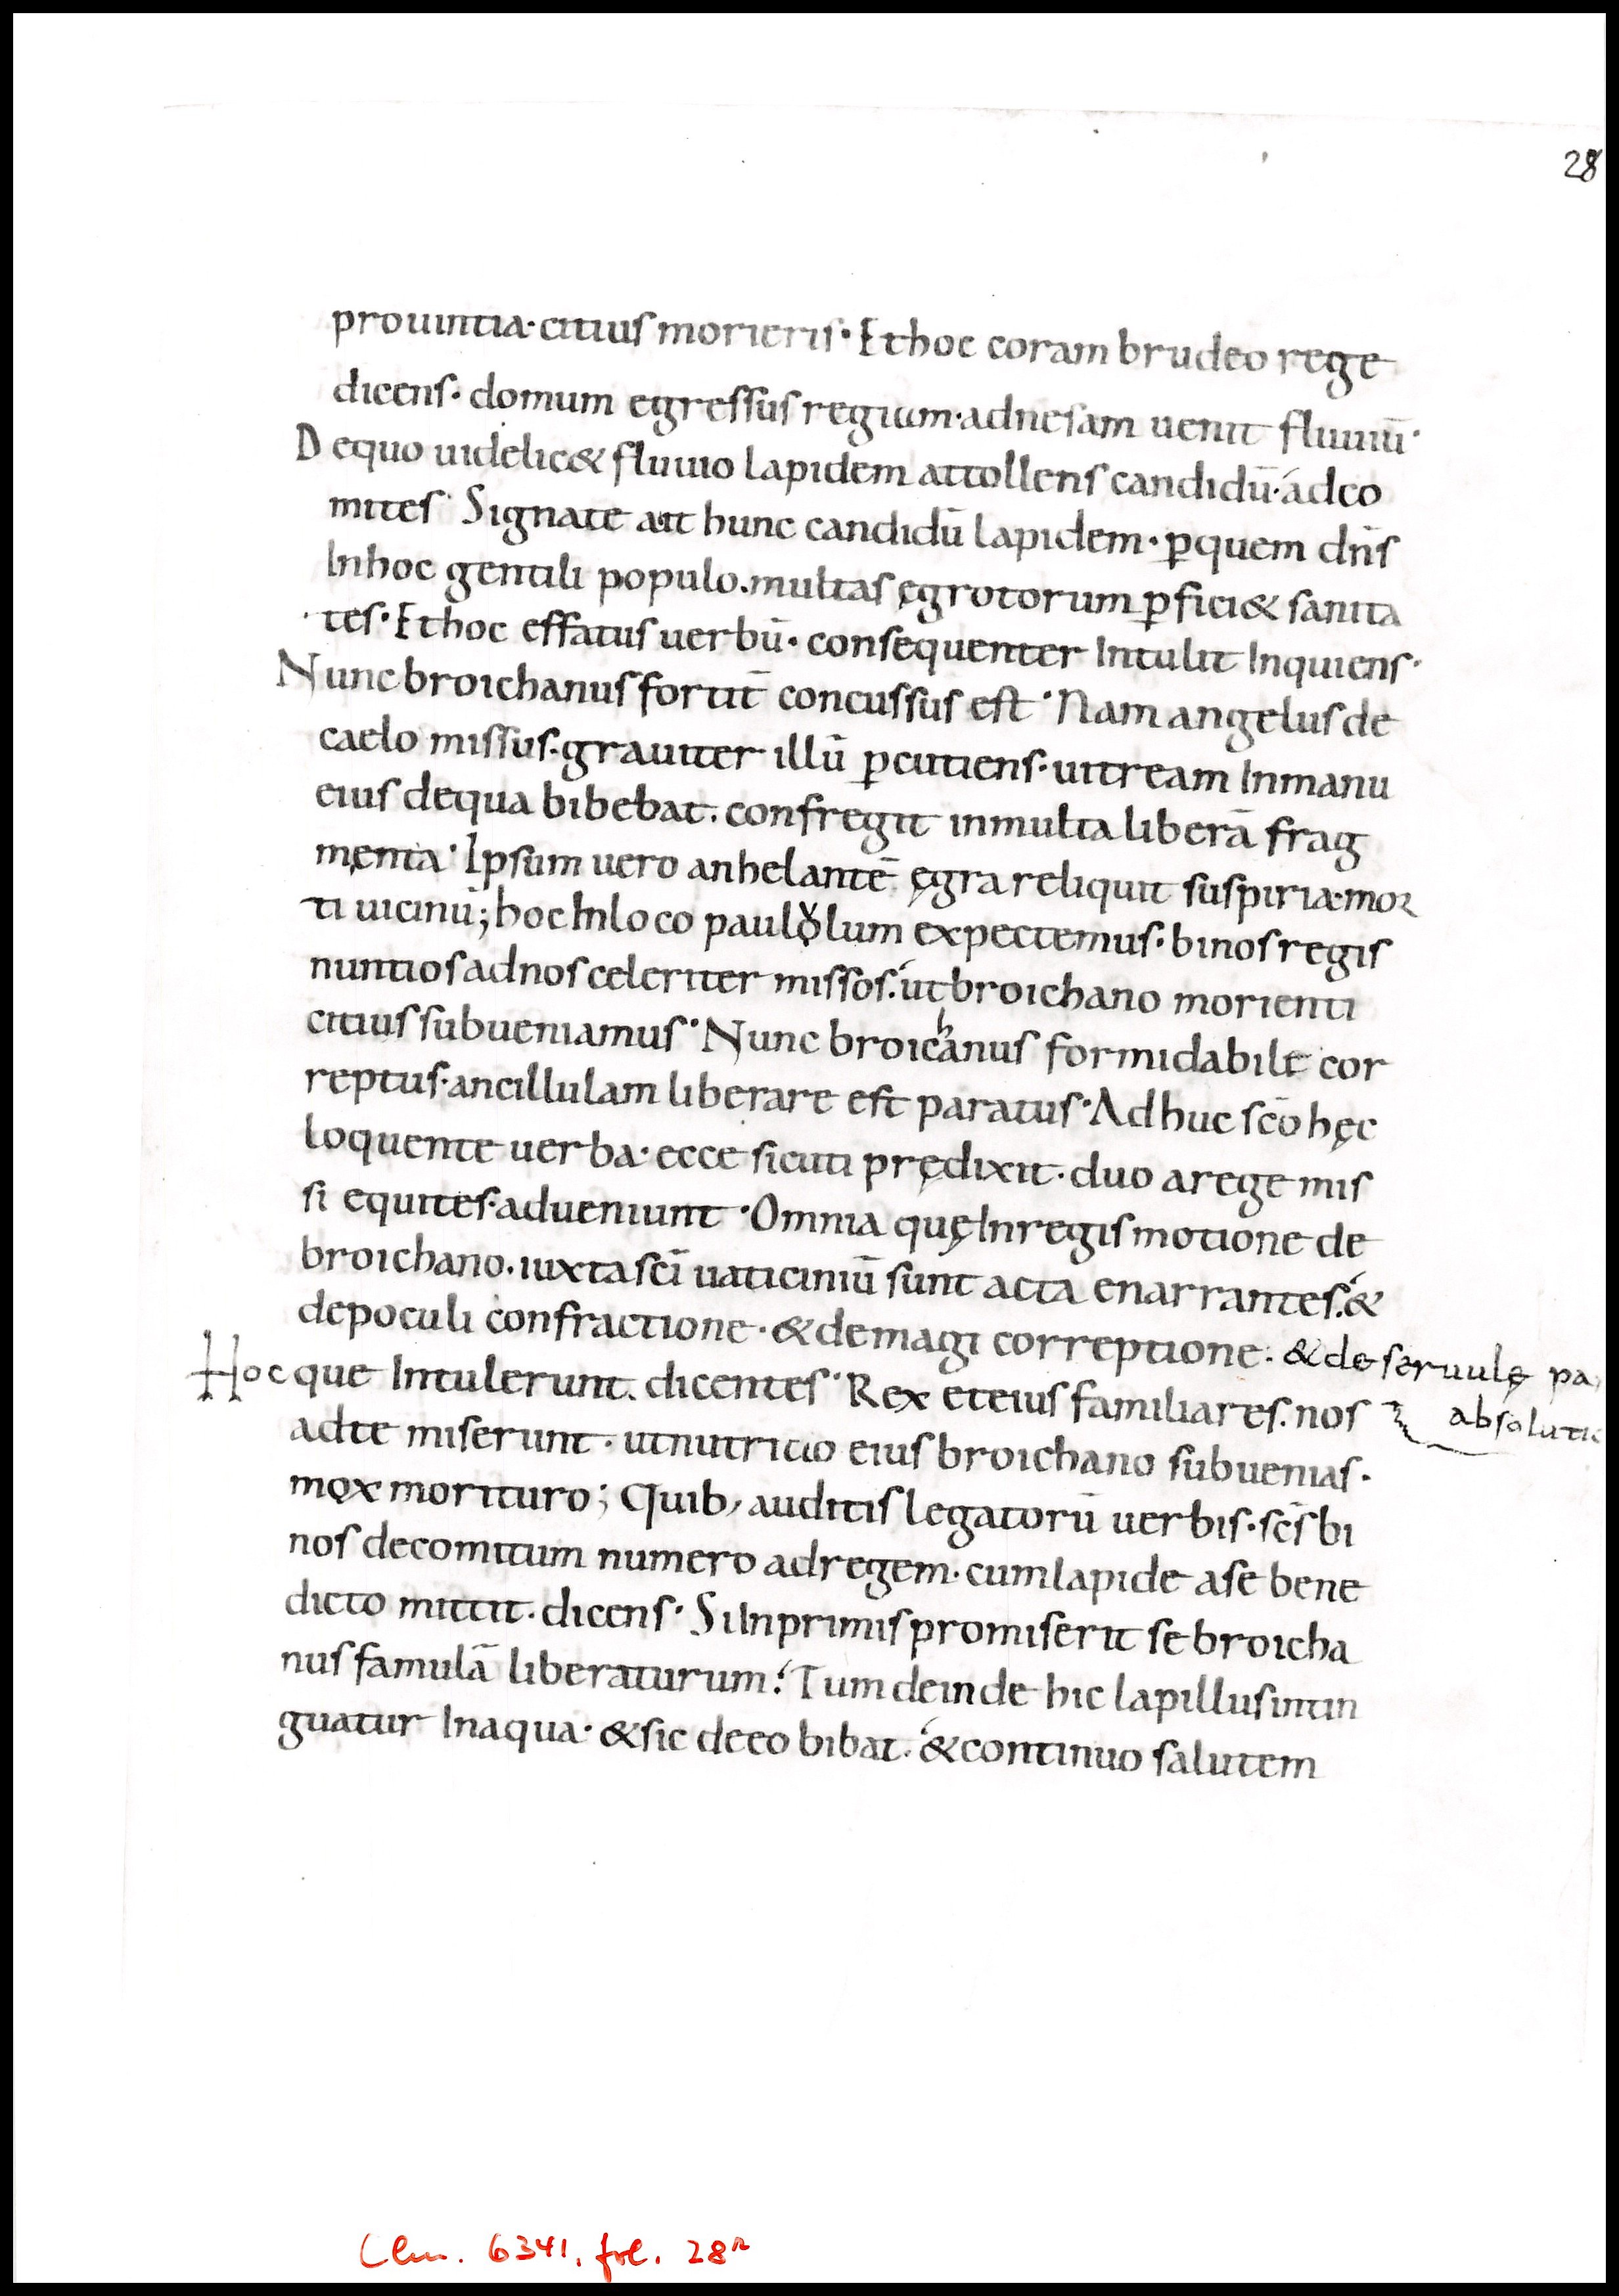 28
prouintia· citius morieris· Et hoc coram brudeo rege
dicens· domum egressus regiam· ad nesam uenit fluuiū·
De quo uidelic& fluuio lapidem attollens candidū· ad co
mites· Signate ait hunc candidū lapidem· ꝑ quem dn̄s
In hoc gentili populo. multas ęgrotorum ꝑfici& sanita
tes· Et hoc effatus uerbū· consequenter Intulit Inquiens·
Nunc broichanus fortit̄ concussus est· Nam angelus de
caelo missus· grauiter illū ꝑcutiens· uitream In manu
eius de qua bibebat· confregit in multa liberā frag
męnta· Ipsum uero anhelantē ęgra reliquit suspiria· mor
ti uicinū; hoc In loco paululum expectemus· binos regis
nuntios ad nos celeriter missos· ut broichano morienti
citius subueniamus· Nunc broichanus formidabile cor
reptus· ancillulam liberare est paratus· Adhuc scō hęc
loquente uerba· ecce sicuti prędixit· duo a rege mis
si equites· adueniunt· Omnia quę In regis motione de
broichano· iuxta scī uaticiniū sunt acta enarrantes· &
de poculi confractione· & de magi correptione· & de seruulę pa
Hocque Intulerunt· dicentes· Rex et eius familiares· nos absolutio
ad te miserunt· ut nutricio eius broichano subuenias·
mox morituro; Quib, auditis legatorū uerbis· scs̄ bi
nos de comitum numero ad regem· cum lapide a se bene
dicto mittit· dicens· Si In primis promiserit se broicha
nus famulā liberaturum· Tum deinde hic lapillus intin
guatur In aqua· & sic de eo bibat· & continuo salutem
Clm. 6341, fol. 28r